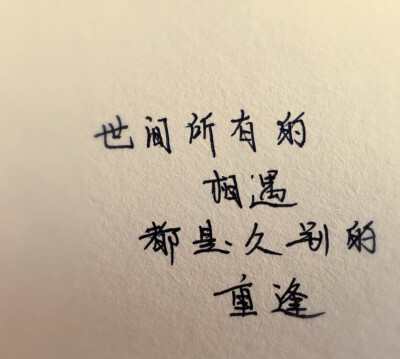 世间所有的
相遇
都是久别的
重逢